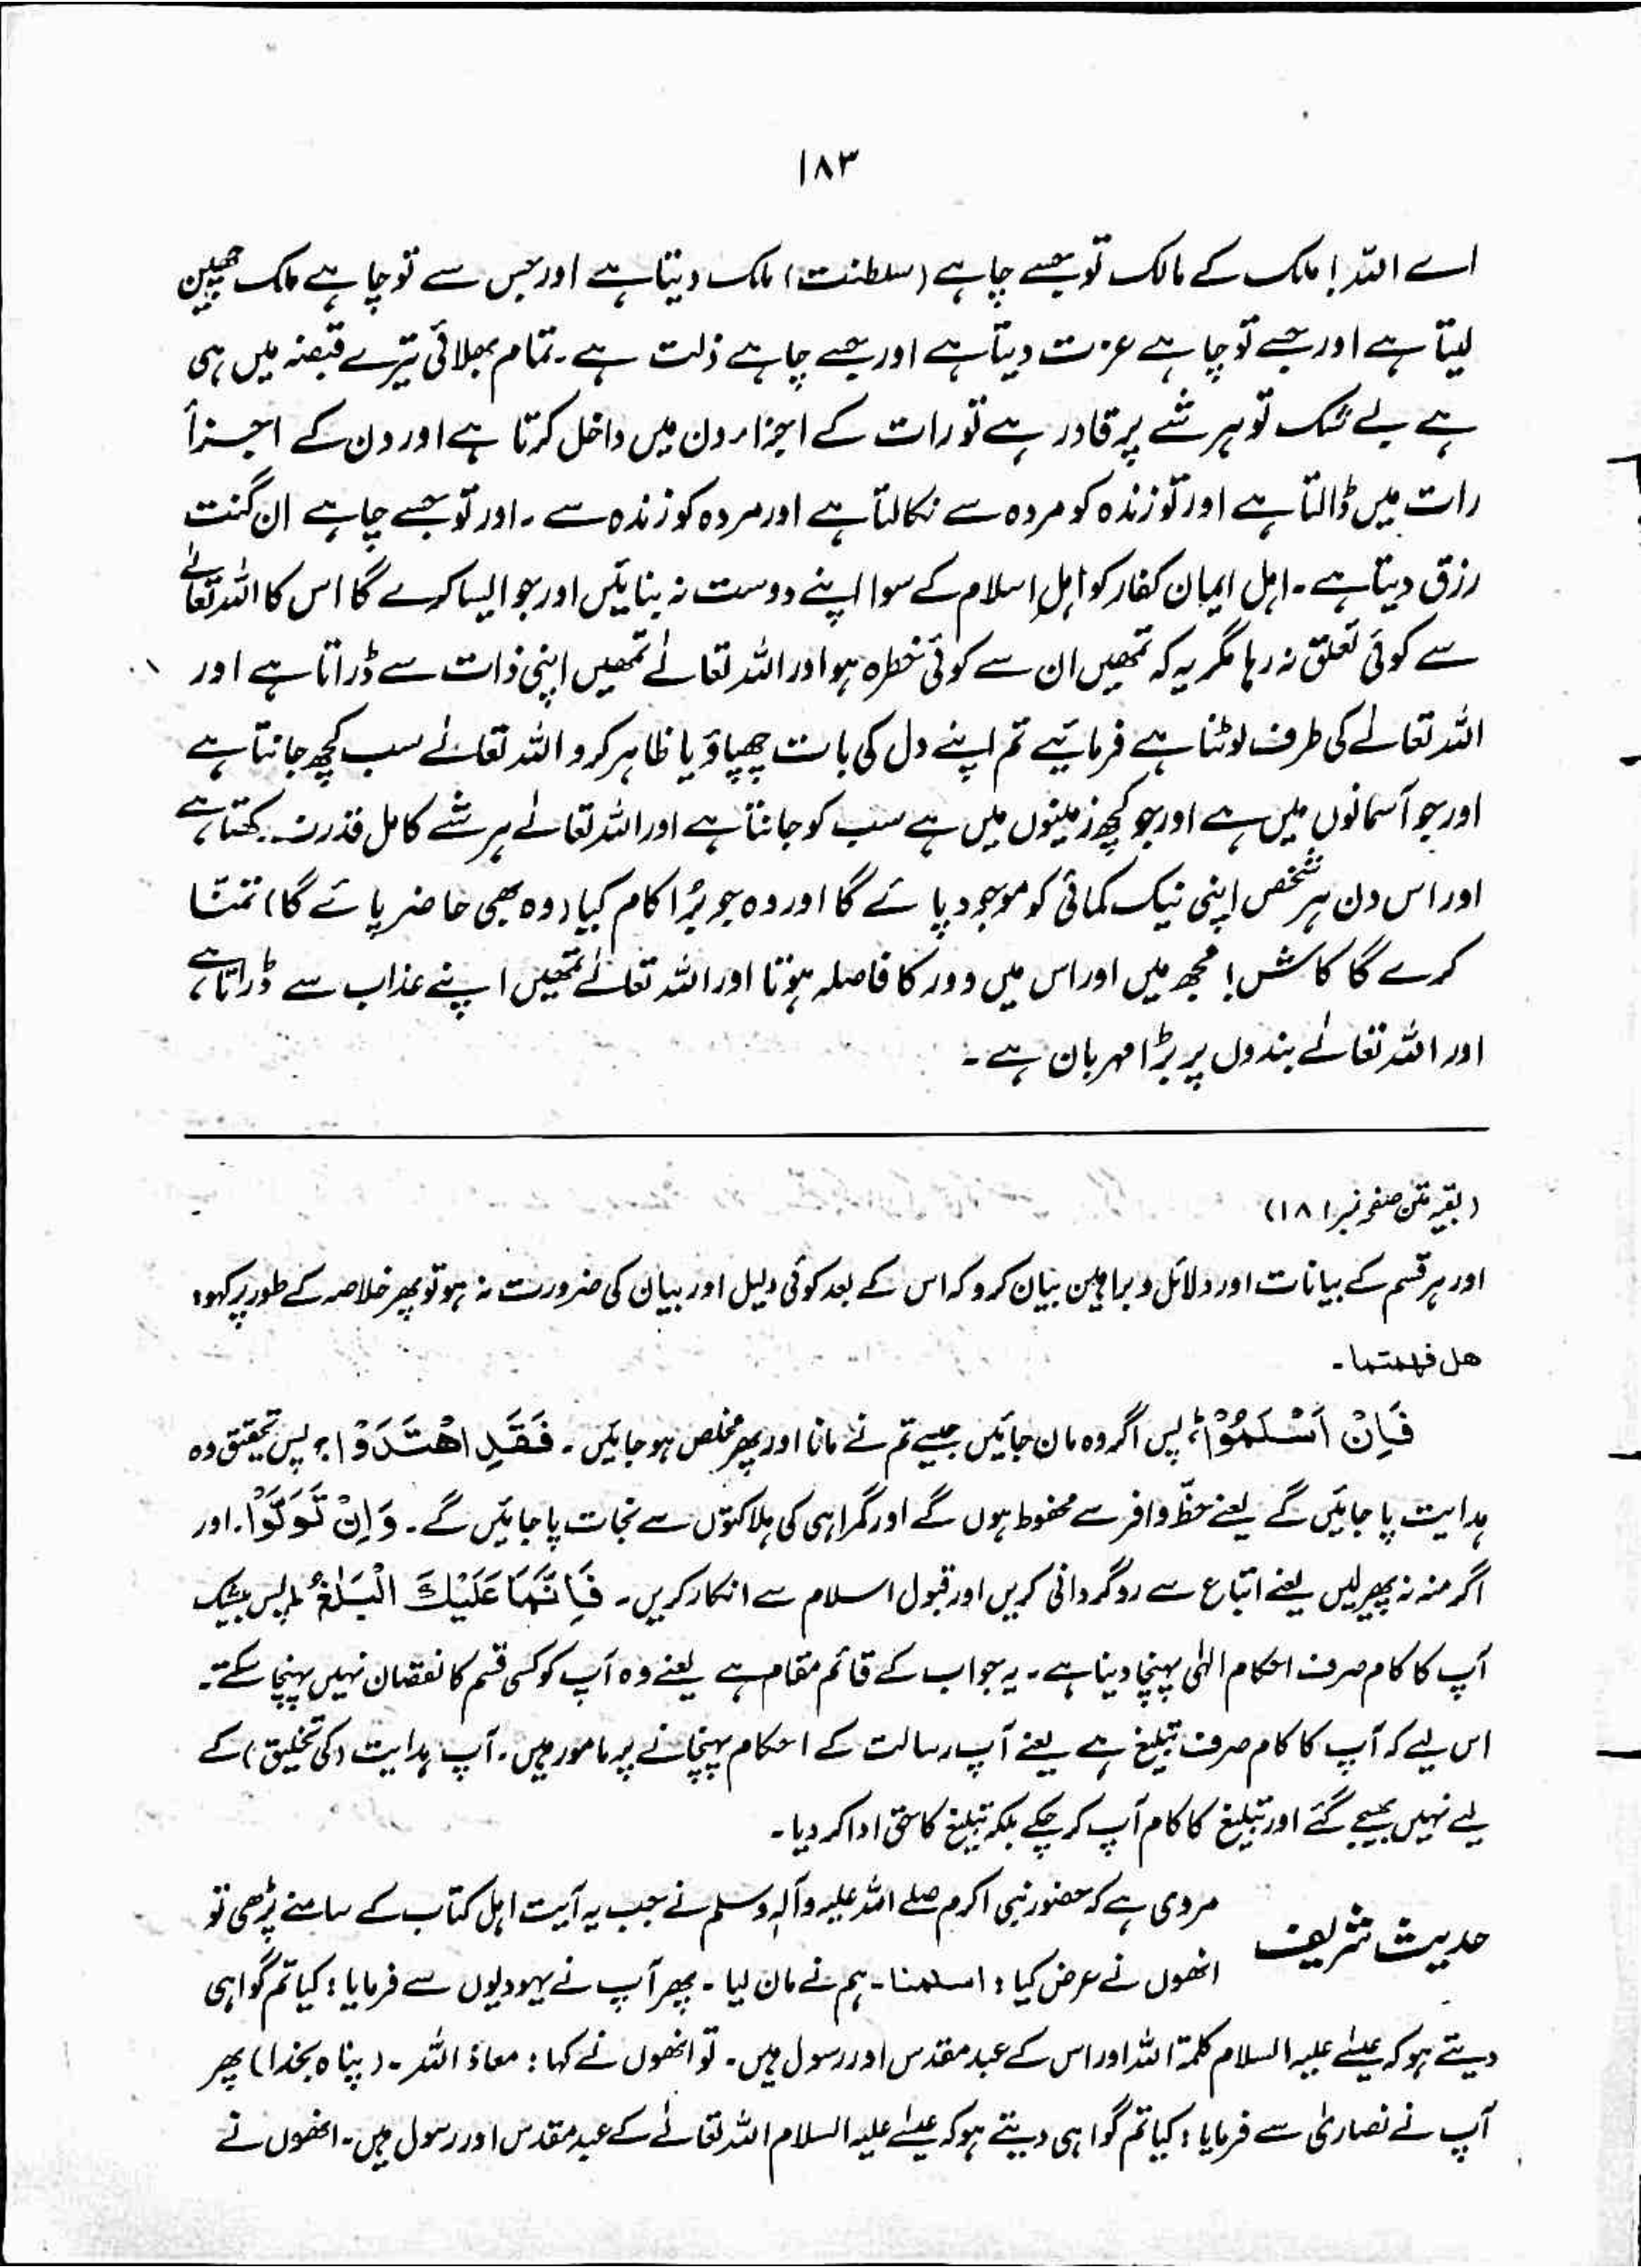 ۱۸۳
اے اللہ! ملک کے مالک تو جسے چاہے (سلطنت) ملک دیتا ہے اور جس سے تو چاہے ملک چھین
لیتا ہے اور جسے تو چاہے عزت دیتا ہے اور جسے چاہے ذلت ہے۔ تمام بھلائی تیرے قبضہ میں ہی
ہے بے شک تو ہر شے پر قادر ہے تو رات کے اجزاء دن میں داخل کرتا ہے اور دن کے اجزأ
رات میں ڈالتا ہے اور تو زندہ کو مردہ سے نکالتا ہے اور مردہ کو زندہ سے۔ اور تو جسے چاہے ان گنت
رزق دیتا ہے۔ اہل ایمان کفار کو اہلِ اسلام کے سوا اپنے دوست نہ بنائیں اور جو ایسا کرے گا اس کا اللہ تعالےٰ
سے کوئی تعلق نہ رہا مگر یہ کہ تمھیں ان سے کوئی خطرہ ہو اور اللہ تعالےٰ تمھیں اپنی ذات سے ڈراتا ہے اور
اللہ تعالےٰ کی طرف لوٹنا ہے فرمائیے تم اپنے دل کی بات چھپاؤ یا ظاہر کرو اللہ تعالےٰ سب کچھ جانتا ہے
اور جو آسمانوں میں ہے اور جو کچھ زمینوں میں ہے سب کو جانتا ہے اور اللہ تعالےٰ ہر شے کامل قدرت رکھتا ہے
اور اس دن ہر شخص اپنی نیک کمائی کو موجود پائے گا اور وہ جو بُرا کام کیا (وہ بھی حاضر پائے گا) تمنّا
کرے گا کاش! مجھ میں اور اس میں دور کا فاصلہ ہوتا اور اللہ تعالےٰ تمھیں اپنے عذاب سے ڈراتا ہے
اور اللہ تعالےٰ بندوں پر بڑا مہربان ہے۔
(بقیہ متن صفحہ نمبر ۱۸۱)
اور ہر قسم کے بیانات اور دلائل و براہین بیان کرو کہ اس کے بعد کوئی دلیل اور بیان کی ضرورت نہ ہو تو پھر خلاصہ کے طور پر کہو:
ھل فھمتما۔
فَاِنْ اَسْلَمُوْا؛ پس اگر وہ مان جائیں جیسے تم نے مانا اور پھر مخلص ہو جائیں۔ فَقَدِ اھْتَدَوْا؛ پس تحقیق وہ
ہدایت پا جائیں گے یعنے حظّ وافر سے محفوظ ہوں گے اور گمراہی کی ہلاکتوں سے نجات پا جائیں گے۔ وَاِنْ تَوَلَّوْا۔ اور
اگر منہ نہ پھیر لیں یعنے اتباع سے روگردانی کریں اور قبول اسلام سے انکار کریں۔ فَاِنَّمَا عَلَیْكَ الْبَلٰغُ ط پس بیشک
آپ کا کام صرف احکام الٰہی پہنچا دینا ہے۔ یہ جواب کے قائم مقام ہے یعنے وہ آپ کو کسی قسم کا نقصان نہیں پہنچا سکتے۔
اس لیے کہ آپ کا کام صرف تبلیغ ہے یعنے آپ رسالت کے احکام پہنچانے پر مامور ہیں۔ آپ ہدایت (کی تخلیق) کے
لیے نہیں بھیجے گئے اور تبلیغ کا کام آپ کر چکے بلکہ تبلیغ کا حق ادا کر دیا۔
حدیث شریف مروی ہے کہ حضور نبی اکرم صلے اللہ علیہ وآلہٖ وسلم نے جب یہ آیت اہل کتاب کے سامنے پڑھی تو
انھوں نے عرض کیا: اسلمنا۔ ہم نے مان لیا۔ پھر آپ نے یہودیوں سے فرمایا: کیا تم گواہی
دیتے ہو کہ عیسےٰ علیہ السلام کلمۃ اللہ اور اس کے عبد مقدس اور رسول ہیں۔ تو انھوں نے کہا: معاذ اللہ۔ (پناہ بخدا) پھر
آپ نے نصاریٰ سے فرمایا: کیا تم گواہی دیتے ہو کہ عیسےٰ علیہ السلام اللہ تعالےٰ کے عبد مقدس اور رسول ہیں۔ انھوں نے